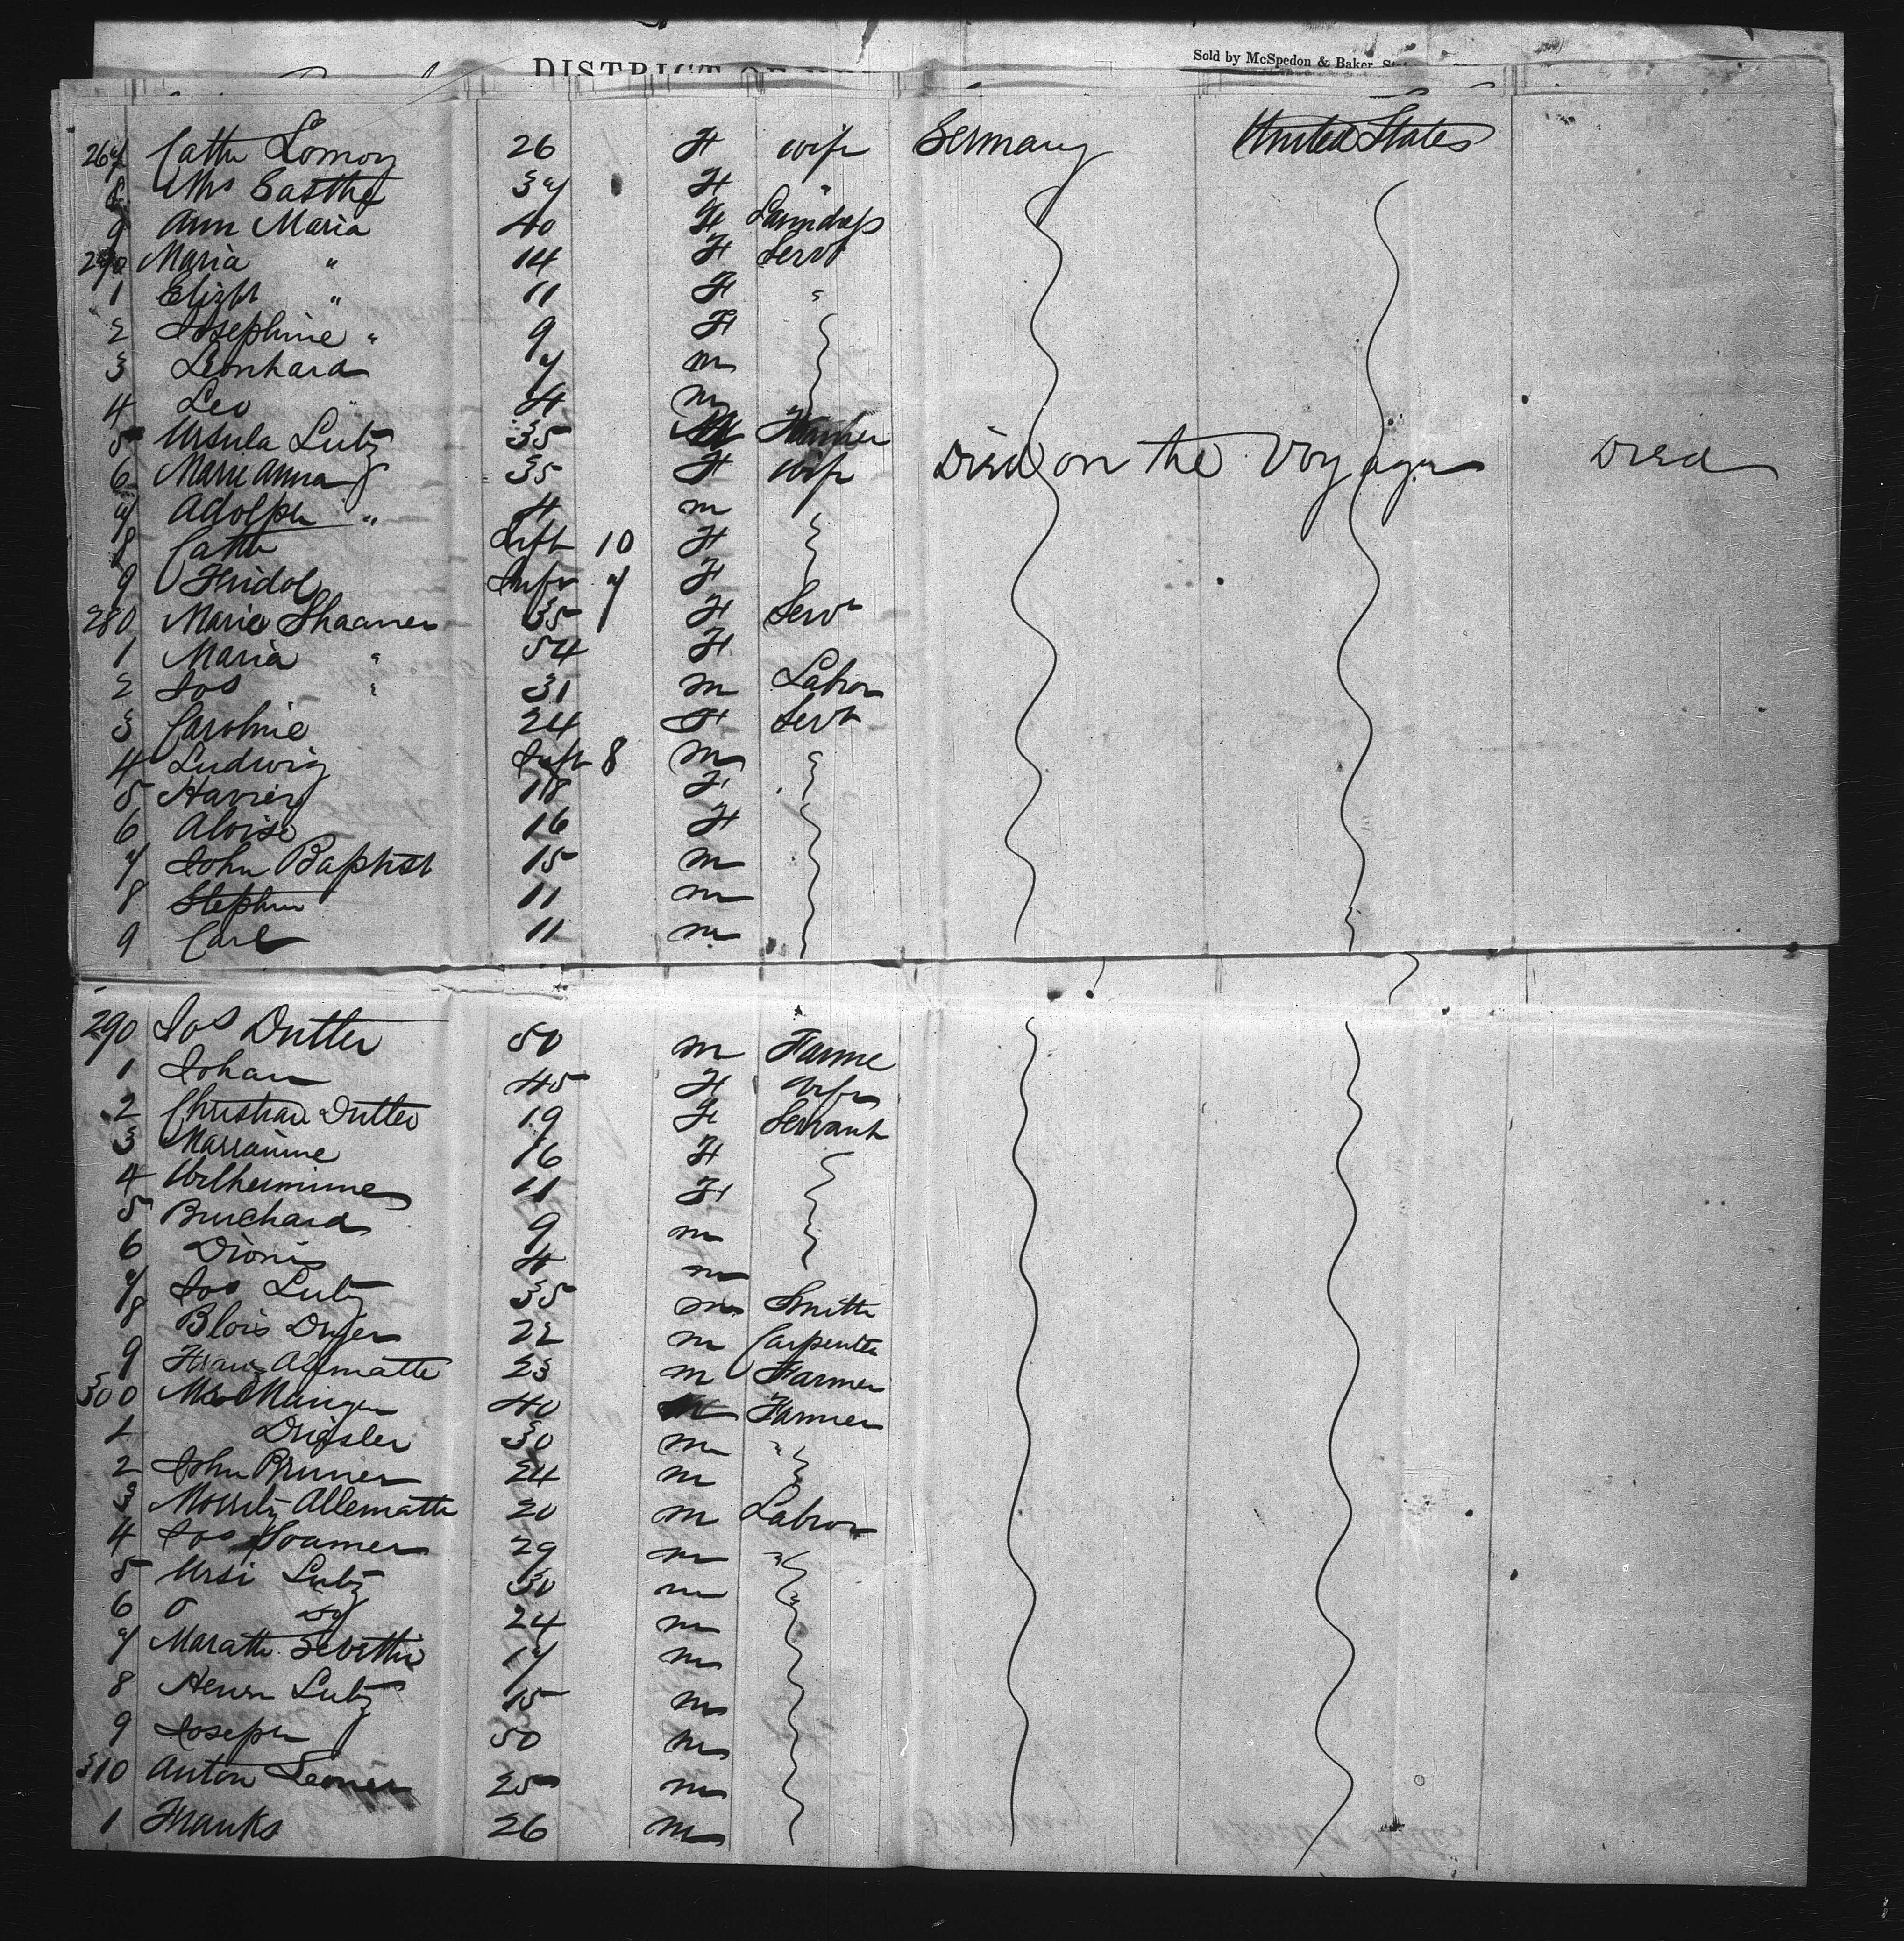 DISTRICT OF NEW
Sold by McSpedon & Baker
267 Cathe Lomoy 26 F wife Germany United States
8 Mrs Basthe 37 F "
9 Ann Maria 40 F Laundress
270 Maria " 14 F Servt
1 Elizbt " 11 F "
2 Josephine " 9 F
3 Leonhard 7 m
4 Leo " 4 m
5 Ursula Lutz 35 M Farmer
6 Marie Anna 35 F wife Died on the Voyage Died
7 Adolph " 4 m
8 Cathe Inft 10 F
9 Fridol Inft 7 F
280 Maria Shaaner 35 F Servt
1 Maria " 54 F
2 Jos " 31 m Labor
3 Caroline 24 F Servt
4 Ludwig Inft 8 m
5 Xavier 18 F
6 Aloise 16 F
7 John Baptist 15 m
8 Stephen 11 m
9 Carl 11 m
290 Jos Dutler 50 m Farme
1 Johan 45 F wife
2 Christian Dutler 19 F Servant
3 Marianne 16 F
4 Wilhelmine 11 F
5 Burchard 9 m
6 Dionis 4 m
7 Jos Lutz 35 m Smith
8 Blois Dryer 22 m Carpenter
9 Franz Allmatte 23 m Farmer
300 Mr Manger 40 Farmer
1 Drigsler 30 m "
2 John Bruner 24 m
3 Morritz Allematte 20 m Labor
4 Jos 29 m "
5 Ursi Lutz 30 m
6 Do 24 m
7 17 m
8 Henri Lutz 15 m
9 Joseph 50 m
310 Anton 25 m
1 Franks 26 m